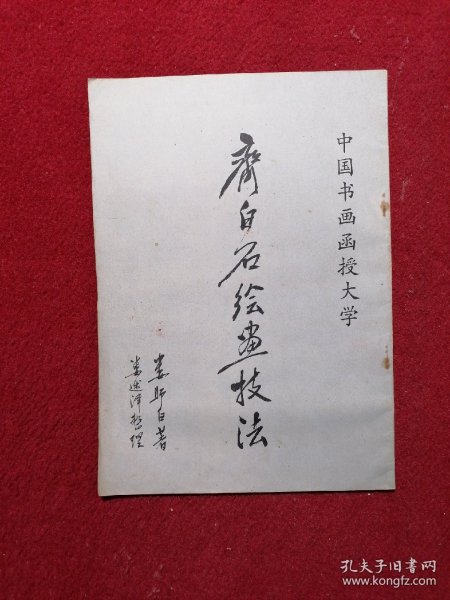 中国书画函授大学
齐白石绘画技法
娄师白著
万述泽整理
孔夫子旧书网
www.kongfz.com